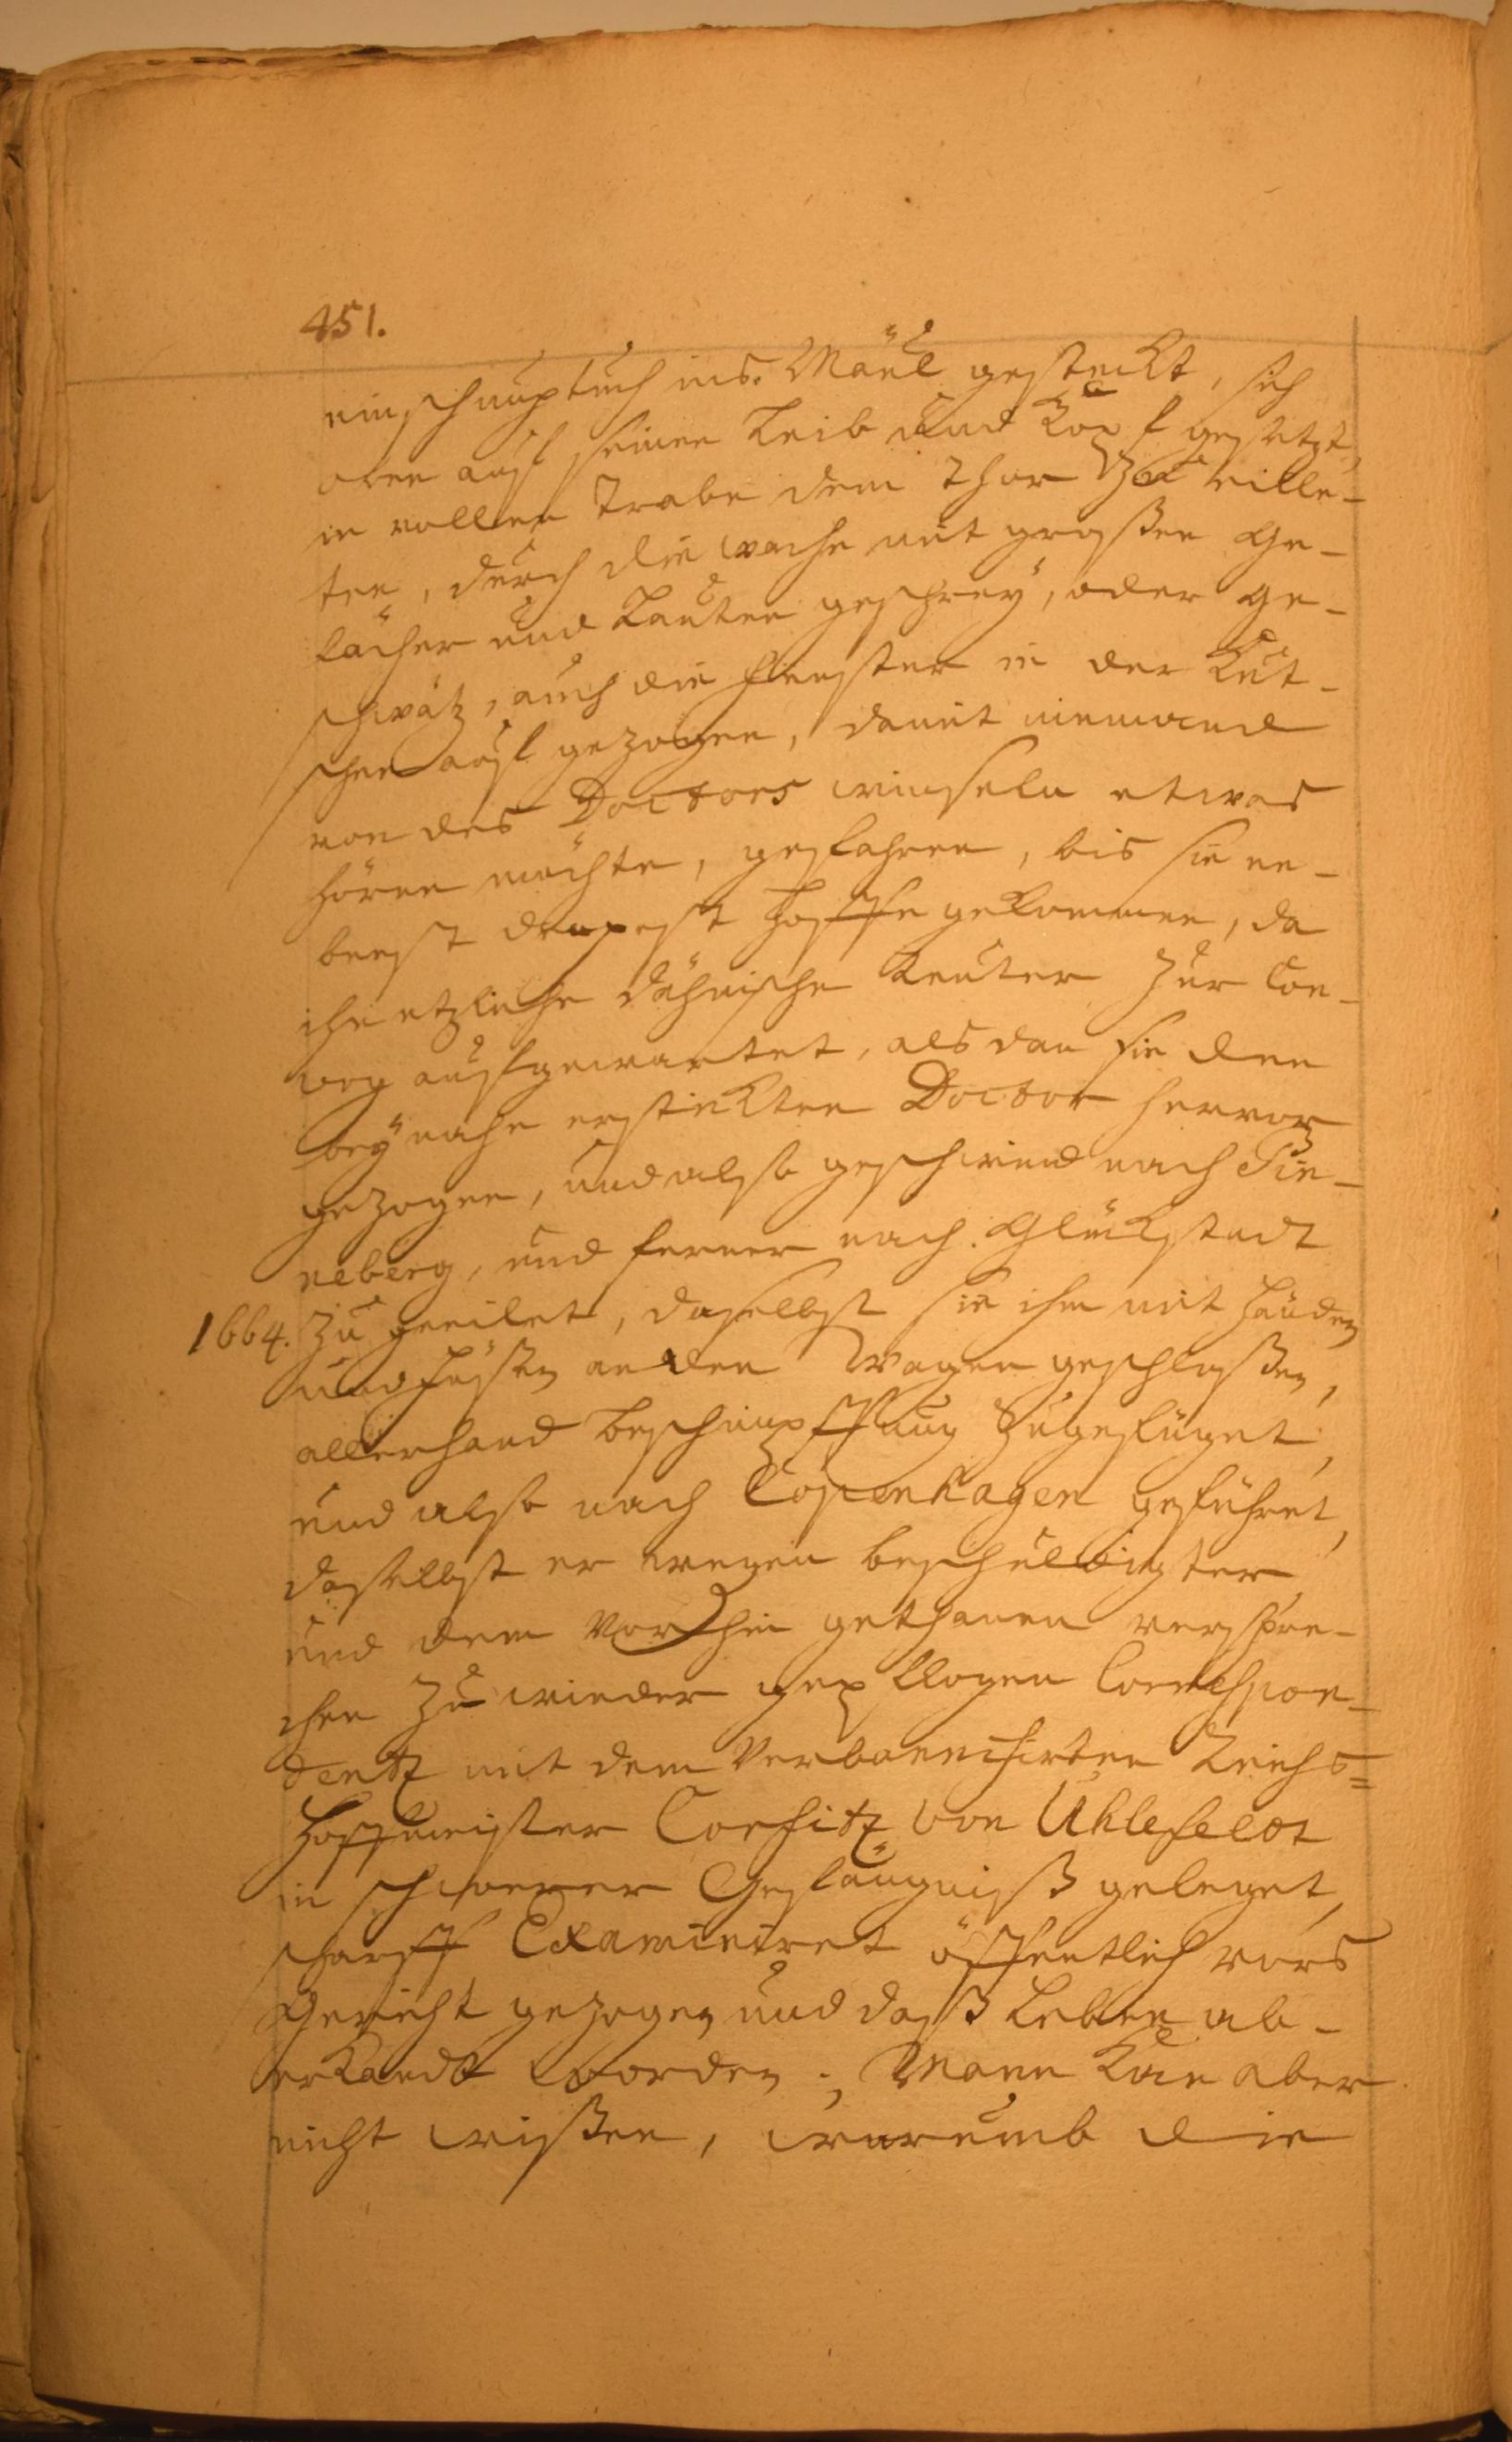 451.
ein schnuptuch ins. Maul gesteckt, sich
oben auf seinen Leib und Kopf gesetzt,
in vollen Trabe dem Thor Zu eille-
ten, durch die wache mit großen Ge-
lächer und Lauten geschrey, oder ge-
schwätz, auch die Fenster in der Kut-
schen auf gezogen, damit niemand
von des Doctors winseln etwas
hören möchte, gefahren, bis sie ne-
benst Hoffe gekommen, da
ihn etzliche dähnische Reuter Zur Con-
voy aufgewartet, als dan sie den
bey nahe erstickten Doctor hervor
gezogen, und also geschwind nach Pin-
neberg, und ferner nach. Glückstadt
1664. Zu geeilet, daselbst sie ihn mit Händen
und Füßen an den Wagen geschloßen,
allerhand beschimpffung Zugefüget,
und also nach Copenhagen geführet,
daselbst er wegen beschuldigter
und dem Vorhin gethanen verspre-
chen Zu wieder gepflogen Correspon-
dentz mit dem Verbannisirten Reichs=
Hoffmeister Corfitz von Uhlefeldt
in schwerer Gefängniß geleget,
scharff Examiniret öffentlich vors
Gericht gezogen und daß Leben ab-
erkandt worden; Mann kan aber
nicht wißen, warumb die